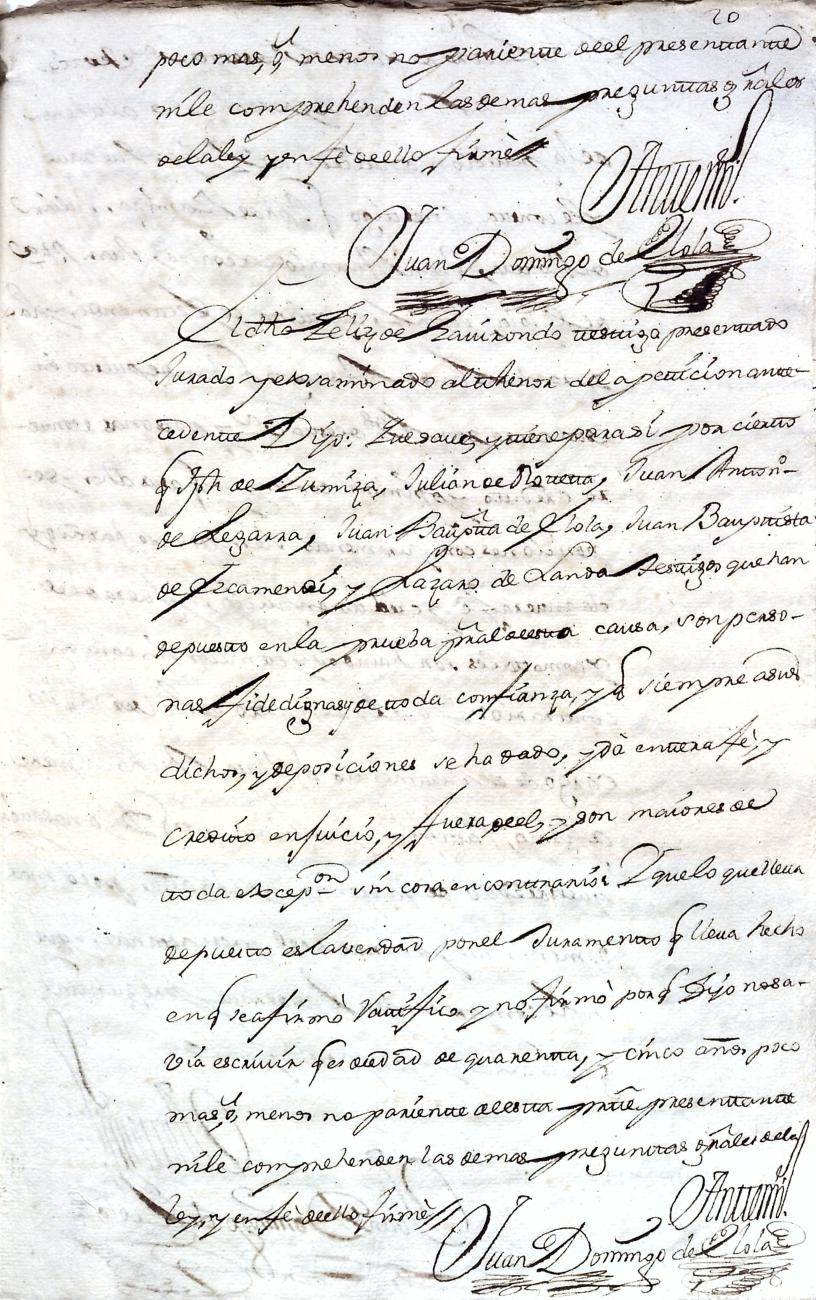 20
poco mas, ô menos no pariente del presentante
nile comprehenden las demas preguntas gñales
dela ley y en feè de ello firmè
Antemi
Juan Domingo de Elola
El dho Feliz de Gavirondo testigo presentado
Jurado y exsaminado al thenor dela peticion ante-
cedente Dijo: Que save, y tiene para si por cierto
q Jph de Zumiza, Julian de Rotetta, Juan Anton.º
de Legarra, Juan Bauptta de Elola, Juan Bauptista
de Ezcamendi, y Lazaro de Landa testigos que han
depuesto en la prueba pñal de esta causa, son perso-
nas fidedignas y de toda confianza, y q siempre asus
dichos, y deposiciones se ha dado, y dà entera fè, y
credito en juicio, y fuera de el, y son maiores de
toda excep.on sin cosa en contrario: Y que lo que lleva
depuesto es la verdad por el Juramento q lleva hecho
en q se afirmò Ratifico y no firmò por q Dijo no sa-
via escrivir q es de edad de quarenta, y cinco años poco
mas, ô menos no pariente de esta parte presentante
nile comprehenden las demas preguntas gñales dela
ley, y en fè de ello firmè
Antemi
Juan Domingo de Elola